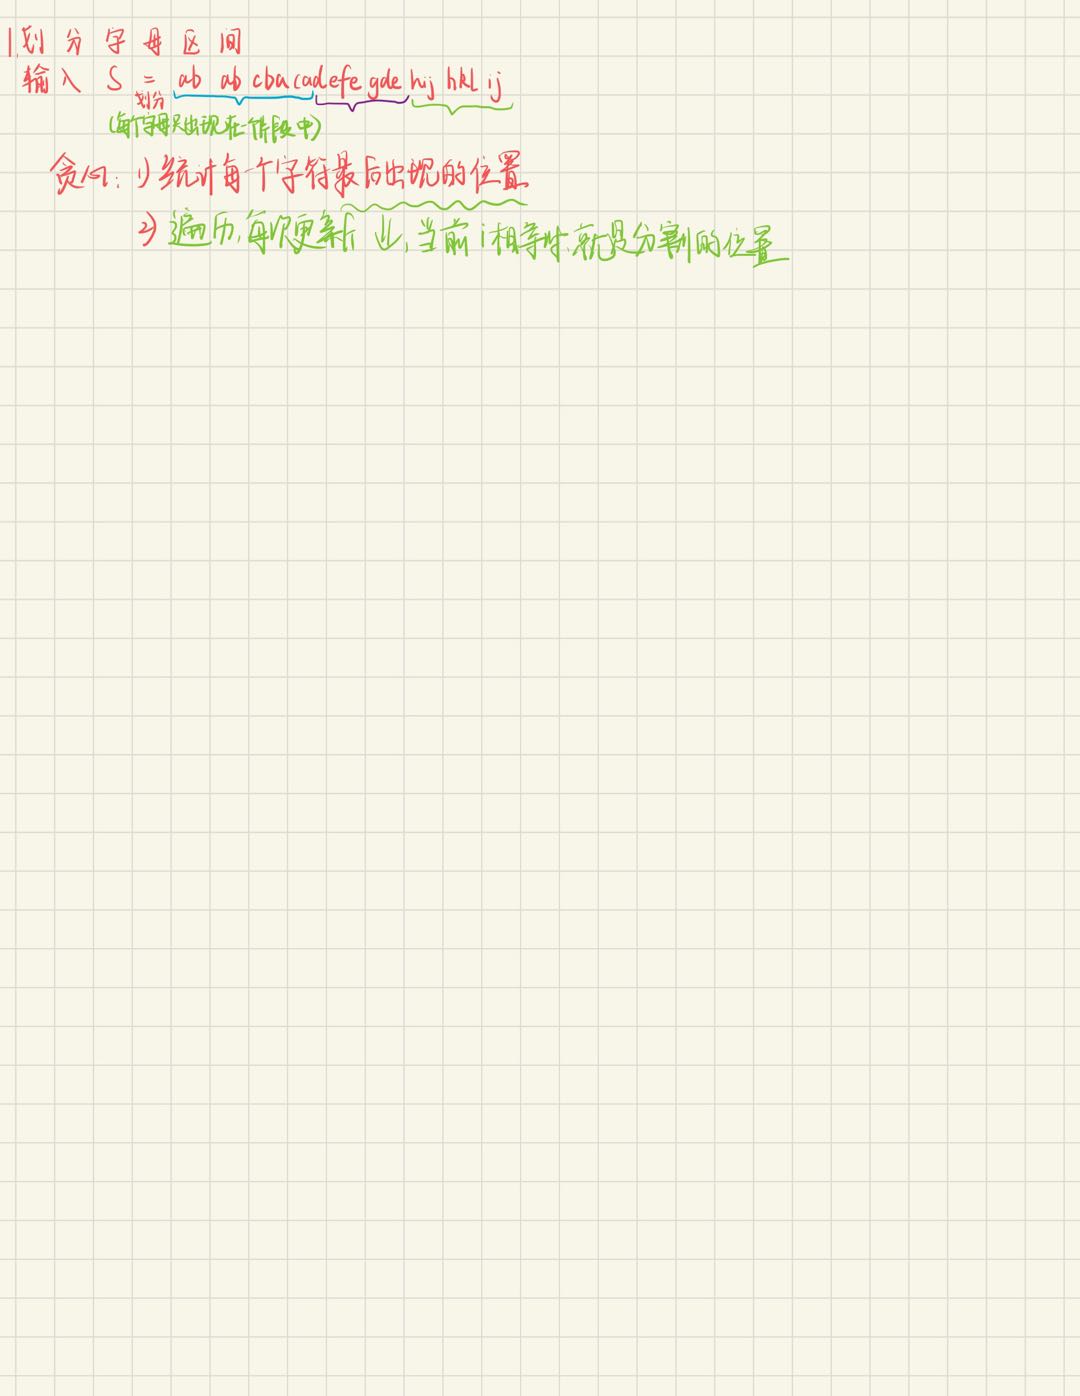 1.划分字母区间
输入 S = ab ab cbacadefe gde hij hkl ij
划分
(每个字母只出现在一个片段中)
贪心: 1) 统计每个字符最后出现的位置
2) 遍历,每次更新 ,当前i相等时,就是分割的位置